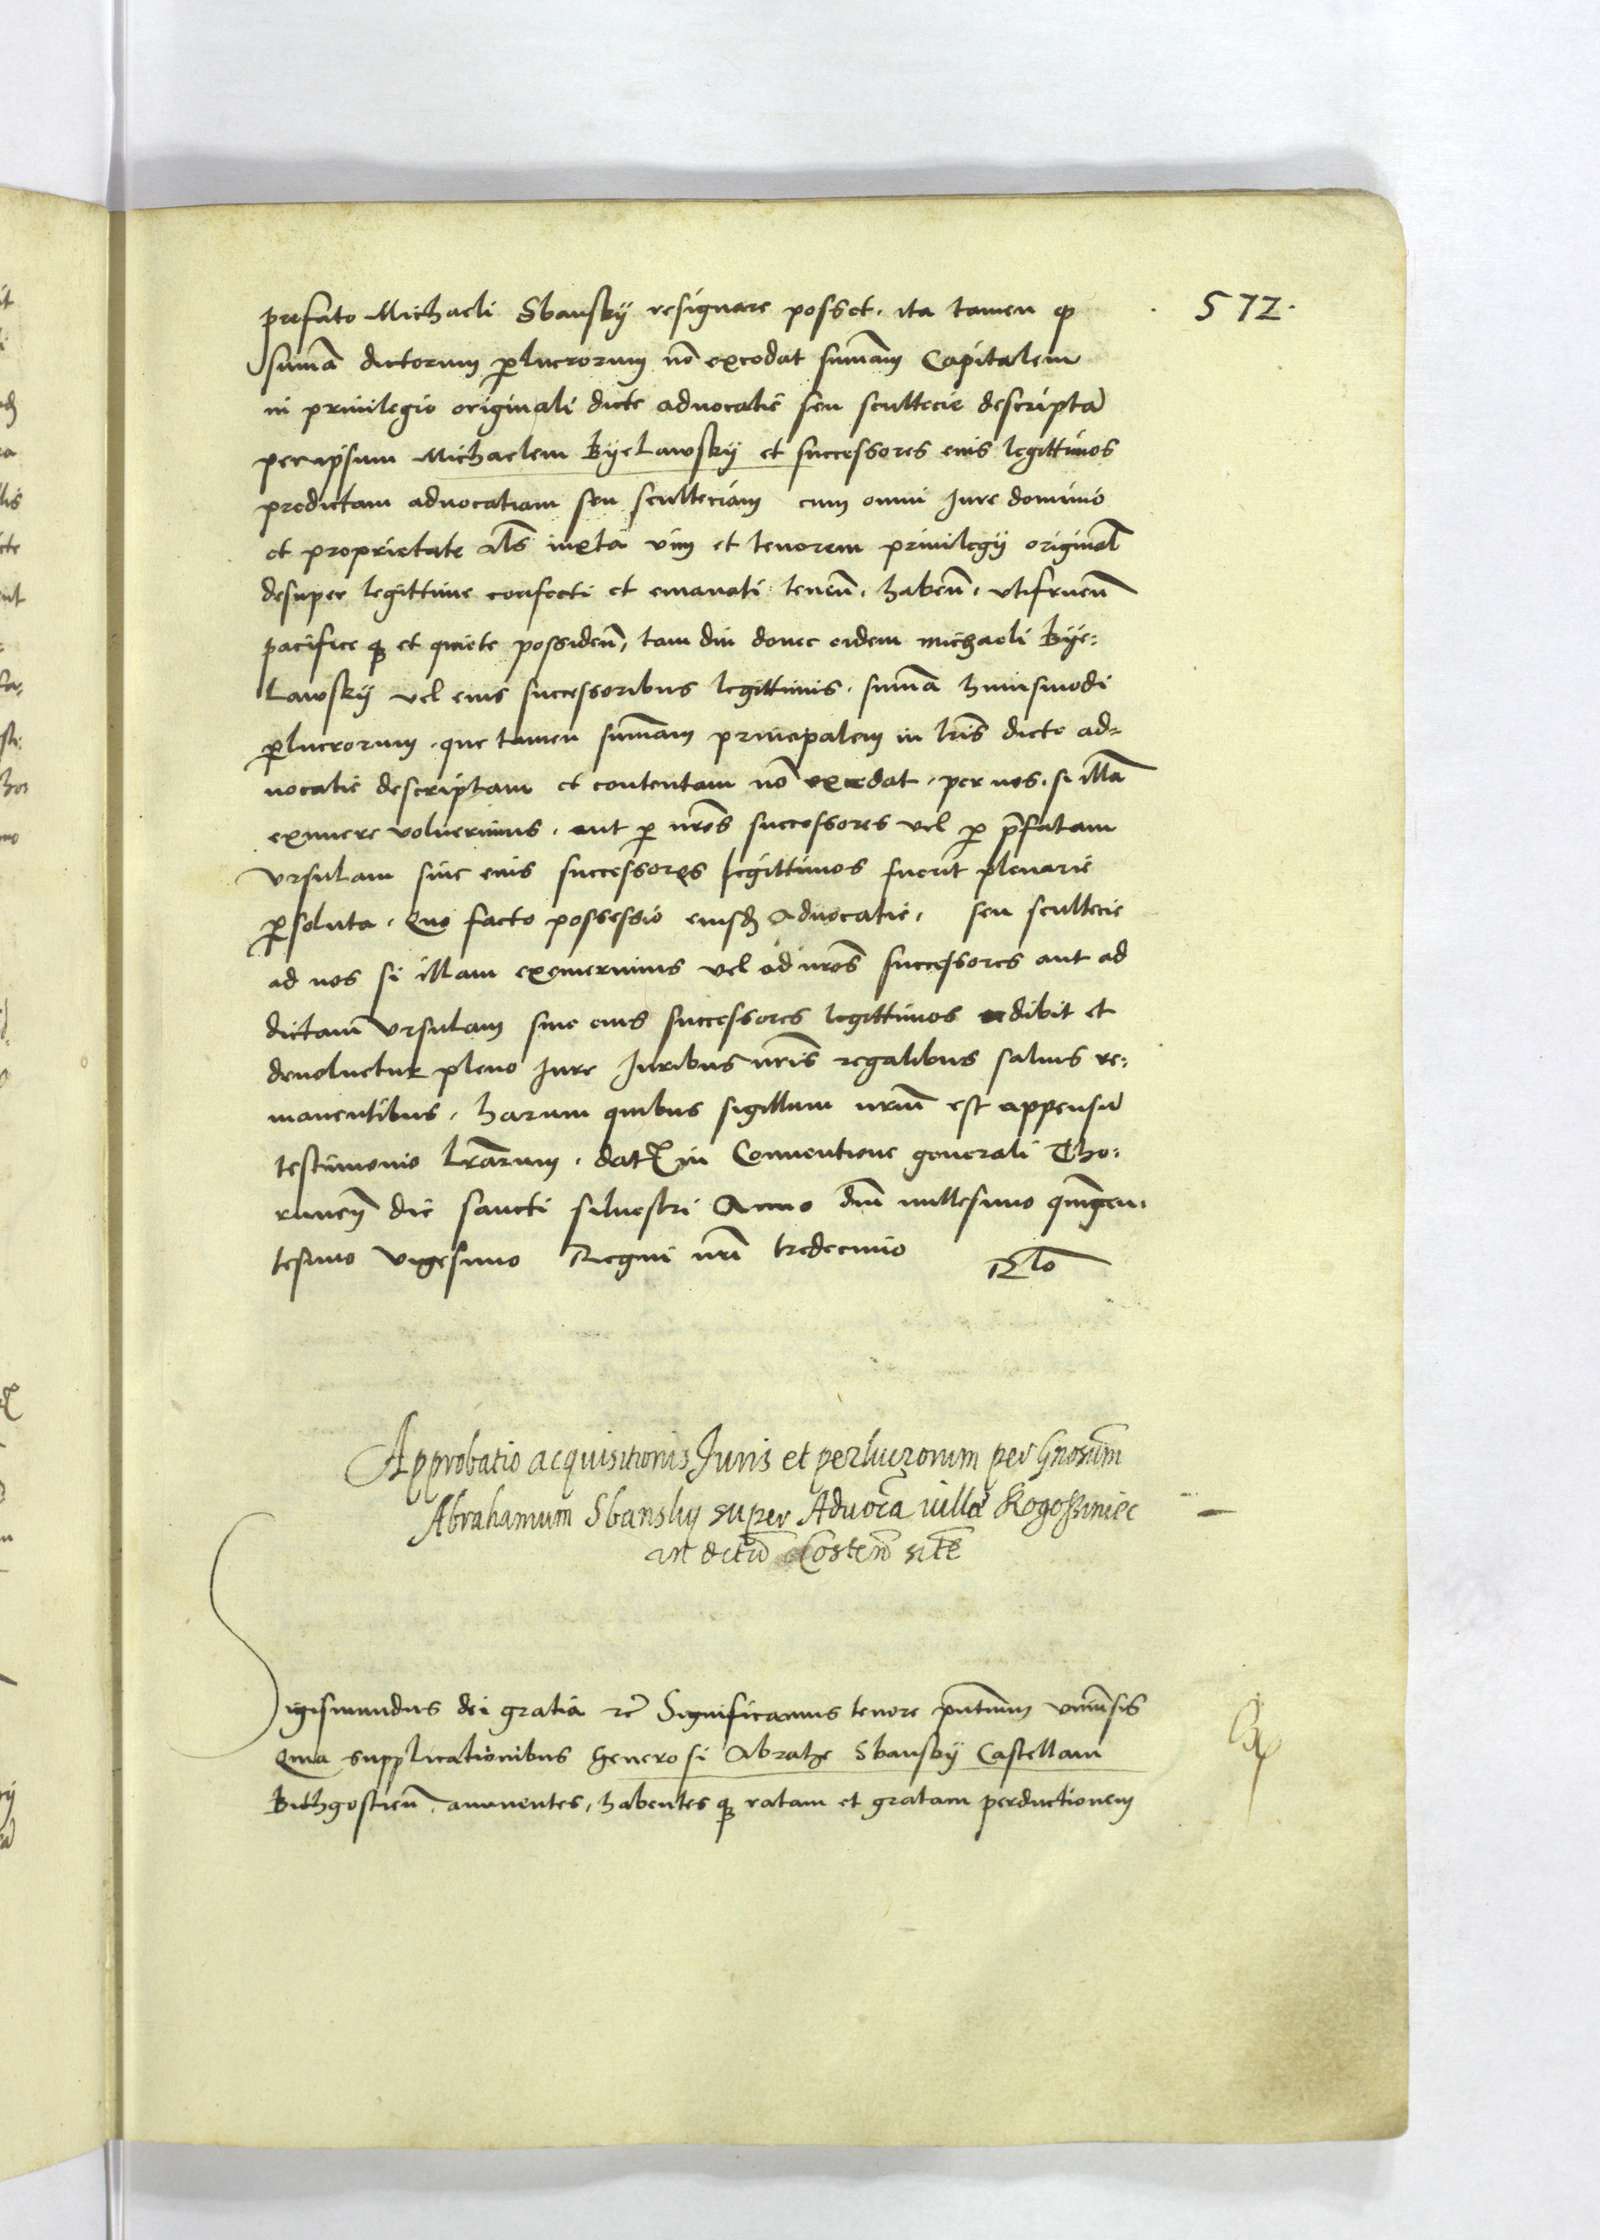 572.
prefato Michaeli Sbansky resignare posset. ita tamen ꝙ
sum̃a dictorum ꝑlucrorum nõ excedat sum̃am Capitalem
in priuilegio originali dicte aduocatie seu scultecie descripta͂
per ipsum Michaelem Byelawsky et successores eius legittimos
predictam aduocatiam seu scultetiam cum omni Jure dominio
et proprietate als̃ iuxta vim et tenorem priuilegij original̃
desuper legittime confecti et emanati teneñ. habeñ. vtifrueñ
pacifice qȝ et quiete possideñ, tam diu donec eidem michaeli Bye:
Lawsky vel eius successoribus legittimis. sum̃a huiusmodi
ꝑlucrorum. que tamen sum̃am principalem in lr̃is dicte ad=
uocatie descriptam et contentam nõ excedat. per nos. si illã
eximere voluerimus. aut ꝑ nr̃os successores vel ꝑ p̃fatam
vrsulam siue eius successores legittimos fuerit plenarie
ꝑsoluta. Quo facto possessio eiusd͂ Aduocatie. seu scultecie
ad nos si illam exemerimus vel ad nr̃os successores aut ad
dictam vrsulam siue eius successores legittimos redibit et
deuoluetur pleno Jure Juribus nr̃is regalibus saluis re:
manentibus. harum quibus sigillum nr̃um est appensũ
testimonio lr̃arum. dat̃ in Conuentione generali Tho:
runeñ die sancti siluestri Anno dñi millesimo qui͂gen:
tesimo vigesimo Regni nr̃i tredecimo Rl̃o
Approbatio acquisitionis Juris et perlucrorum per Gnosum̃
Abrahamum Sbansky super Aduoc̃ia uillæ Rogosziniec
in distri͂ Costeñ sitæ
Sigismundus dei gratia ꝛc̃ Significamus tenore p̃ntium vniuersis
Quia supplicationibus Generosi Abrahe Sbansky Castellani
Bithgostieñ. annuentes, habentes qȝ ratam et gratam perductionem